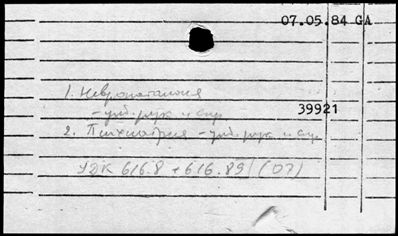 07.05.84 GA
1. Невропатология
- учб. рук. и спр.
39921
2. Психиатрия - учб. рук. и спр.
УДК 616.8 + 616.89 (07)